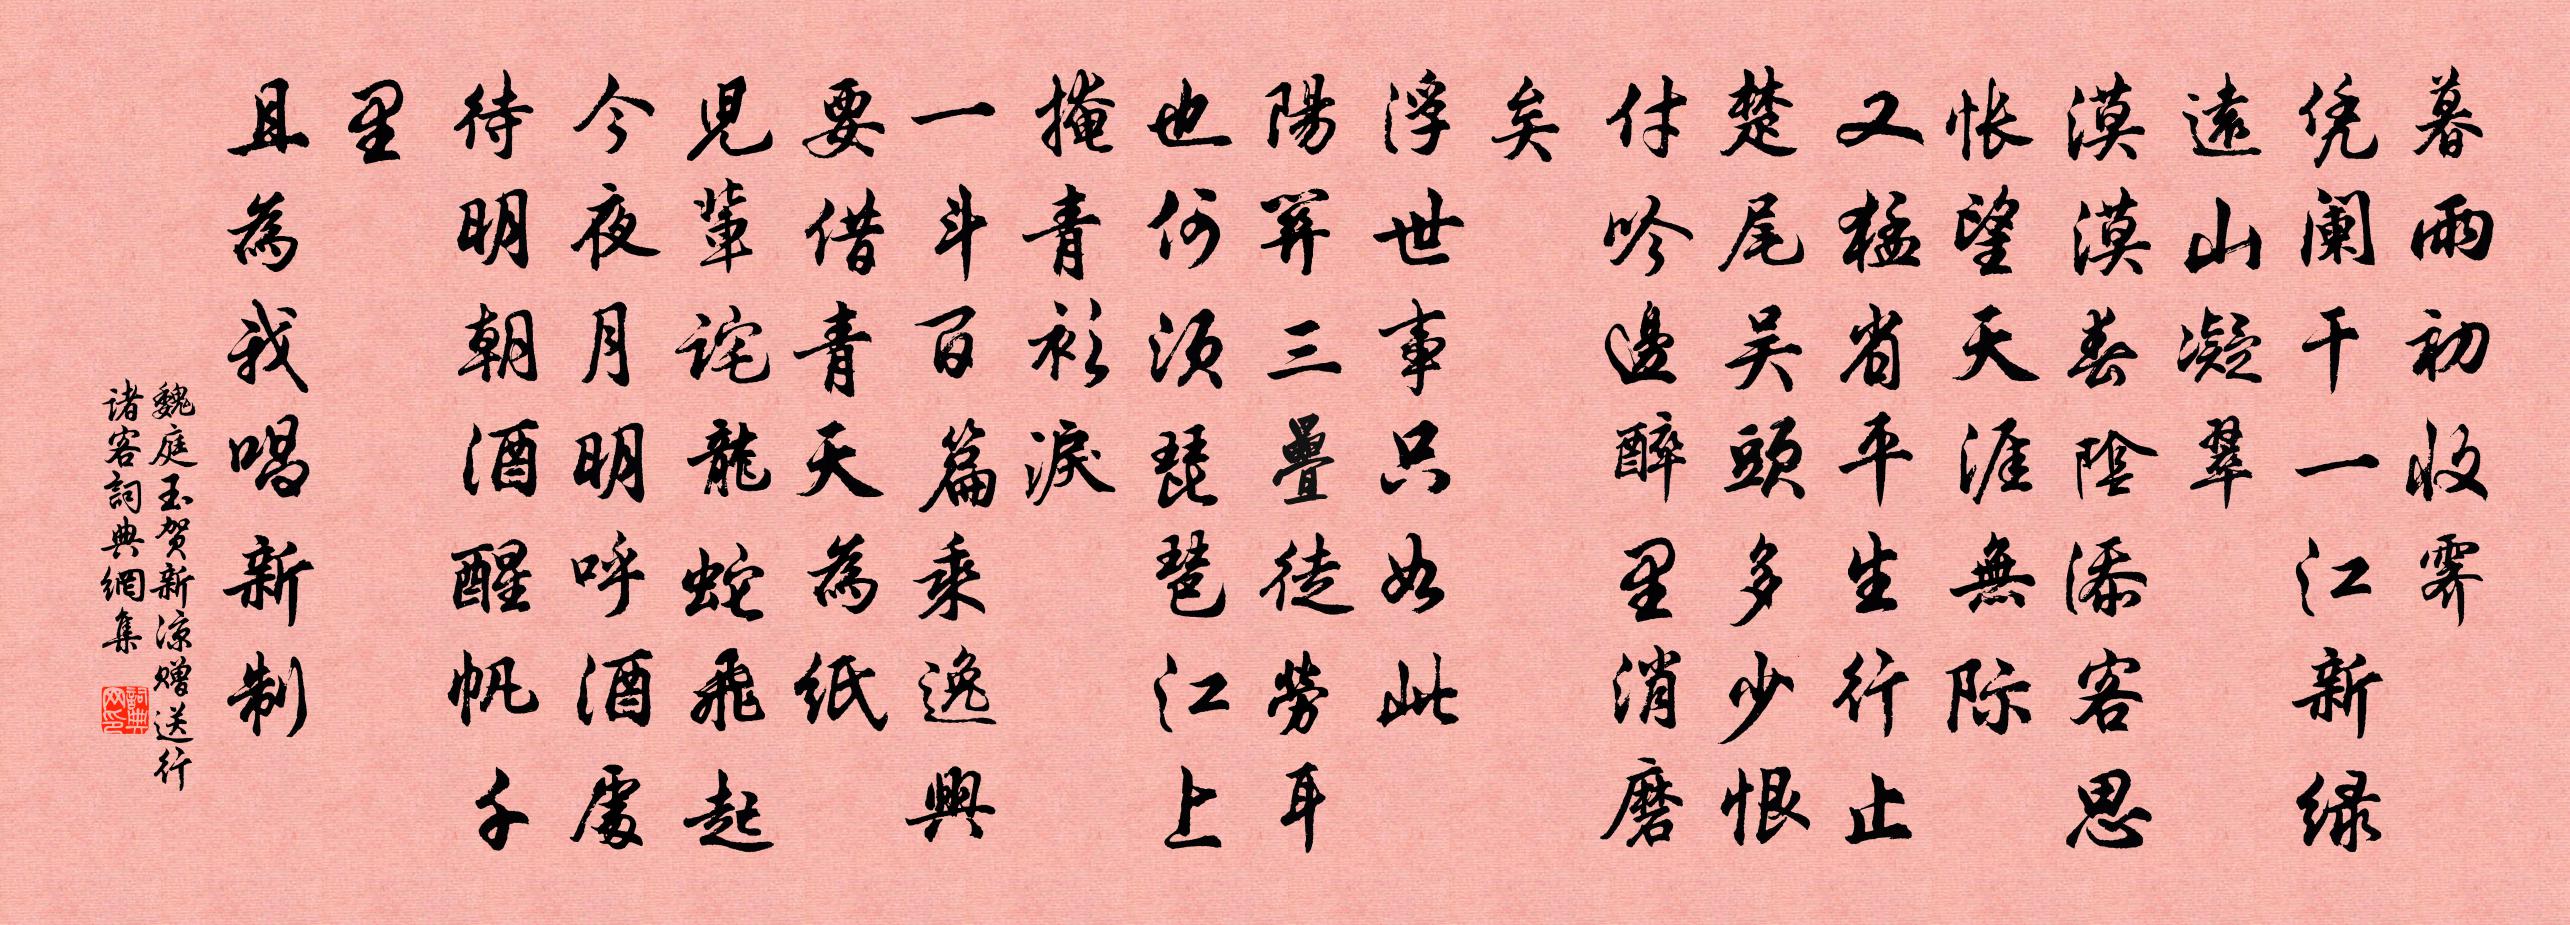 暮雨初收霽
凭阑干一江新緑
遠山凝翠
漠漠春陰添客思
悵望天涯無際
又猛省平生行止
楚尾吴頭多少恨
付吟邊醉里消磨
矣
浮世事只如此
陽關三疊徒勞耳
也何須琵琶江上
掩青衫淚
一斗百篇乘逸興
要借青天為紙
兒輩詫龍蛇飛起
今夜月明呼酒處
待明朝酒醒帆千
里
且為我唱新制
魏庭玉贺新凉赠送行
诸客詞典網集
詞典
网印